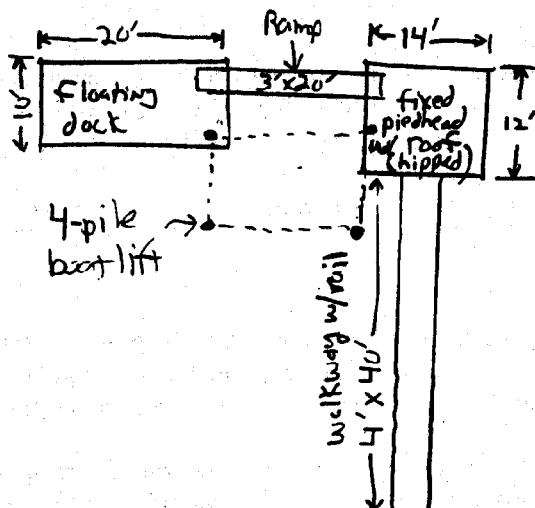 Ramp
20'
14'
10'
Floating
dock
3'x20'
fixed
piedhead
w/ roof
(hipped)
12'
4-pile
boatlift
Walkway w/rail
4' x 40'